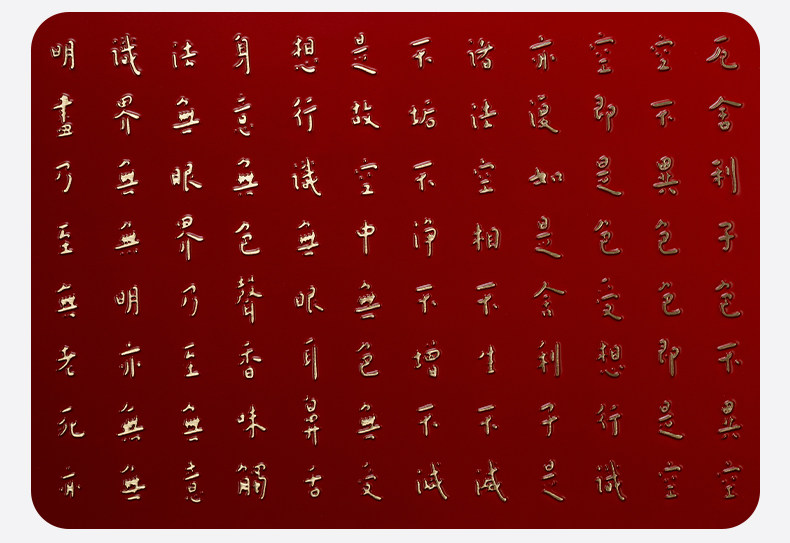 厄舍利子色不異空
空不異色色即是空
空即是色受想行識
亦復如是舍利子是
諸法空相不生不滅
不垢不淨不增不減
是故空中無色無受
想行識無眼耳鼻舌
身意無色聲香味觸
法無眼界乃至無意
識界無無明亦無無
明盡乃至無老死亦